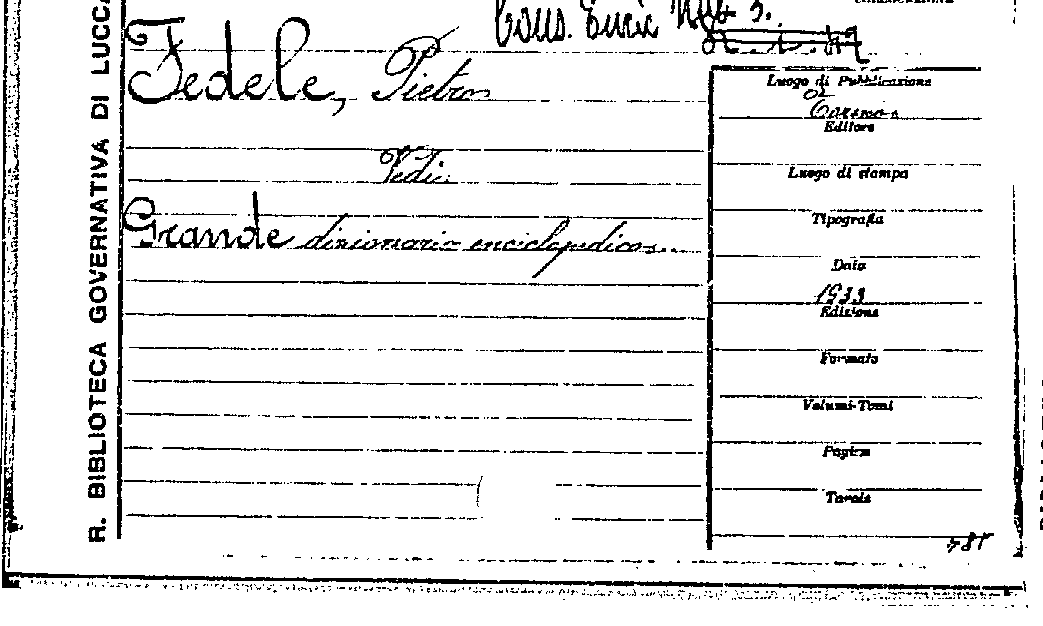 Cons. Encic
Fedele, Pietro
Vedi:
Grande dizionario enciclopedico...
R. BIBLIOTECA GOVERNATIVA DI LUCCA
Luogo di Pubblicazione
Torino
Editore
Luogo di stampa
Tipografia
Data
1933
Edizione
Formato
Volumi-Tomi
Pagine
Tavole